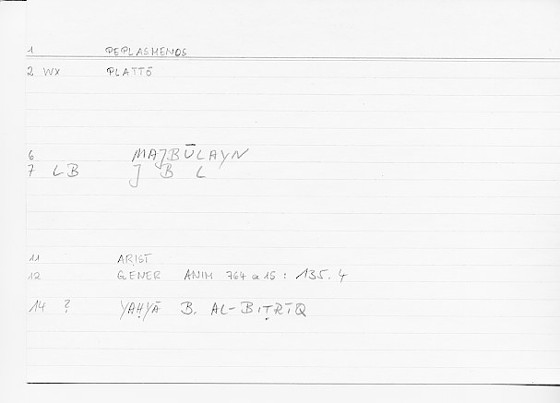 1 PEPLASMENOS
2 WX PLATTŌ
6 MAJBŪLAYN
7 LB J B L
11 ARIST
12 GENER ANIM 764 a 15 : 135.4
14 ? YAḤYĀ B. AL-BIṬRĪQ